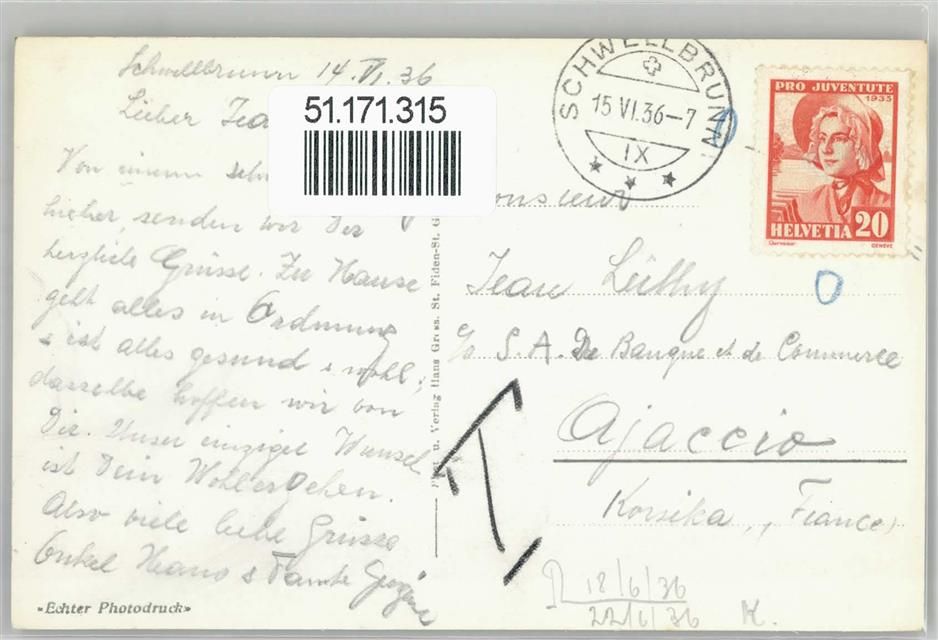 Schwellbrunn 14.VI.36
Lieber Jea
51.171.315
Von einem
hieher, senden wir Dir
herzliche Grüsse. Zu Hause
geht alles in Ordnung
& ist alles gesund & wohl,
dasselbe hoffen wir von
Dir. Unser einziger Wunsch
ist Dein Wohlergehen.
Also viele liebe Grüsse
Onkel Hans & Tante
«Echter Photodruck»
u. Verlag Hans Gross, St. Fiden-St. G
SCHWELLBRUNN
15 VI.36-7
IX
PRO JUVENTUTE
1935
HELVETIA 20
GENÈVE
onsieur
Jean Lüthy
c/o S.A. de Banque et de Commerce
Ajaccio
Korsika, (France)
T
R 18/6/36
22/6/36 K.